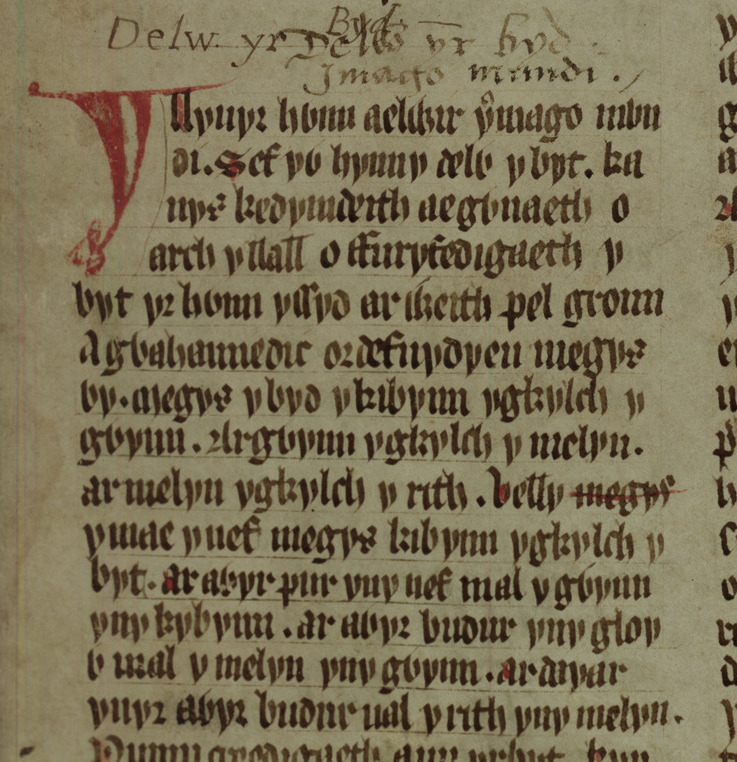 Delw yr Delw yr byd
Byd.
Imago mundi.
Y llyuyr hwnn aelwir ymago mwn
di. Sef yw hynny delw y byt. ka
nys kedymdeith aegwnaeth o
arch yllall o ffuryfedigaeth y
byt yr hwnn yssyd ar weith pel gronn
A gwahannedic or defnydyeu megys
wy. Megys y byd y kibynn ygkylch y
gwynn. Ar gwynn ygkylch y melyn.
ar melyn ygkylch y rith. Velly megys
y mae y nef megys kibynn ygkylch y
byt. ar awyr pur yny nef mal y gwynn
yny kybynn. ar awyr budur yny gloy
w mal y melyn yny gwynn. ar dayar
ynyr awyr budur ual y rith yny melyn.